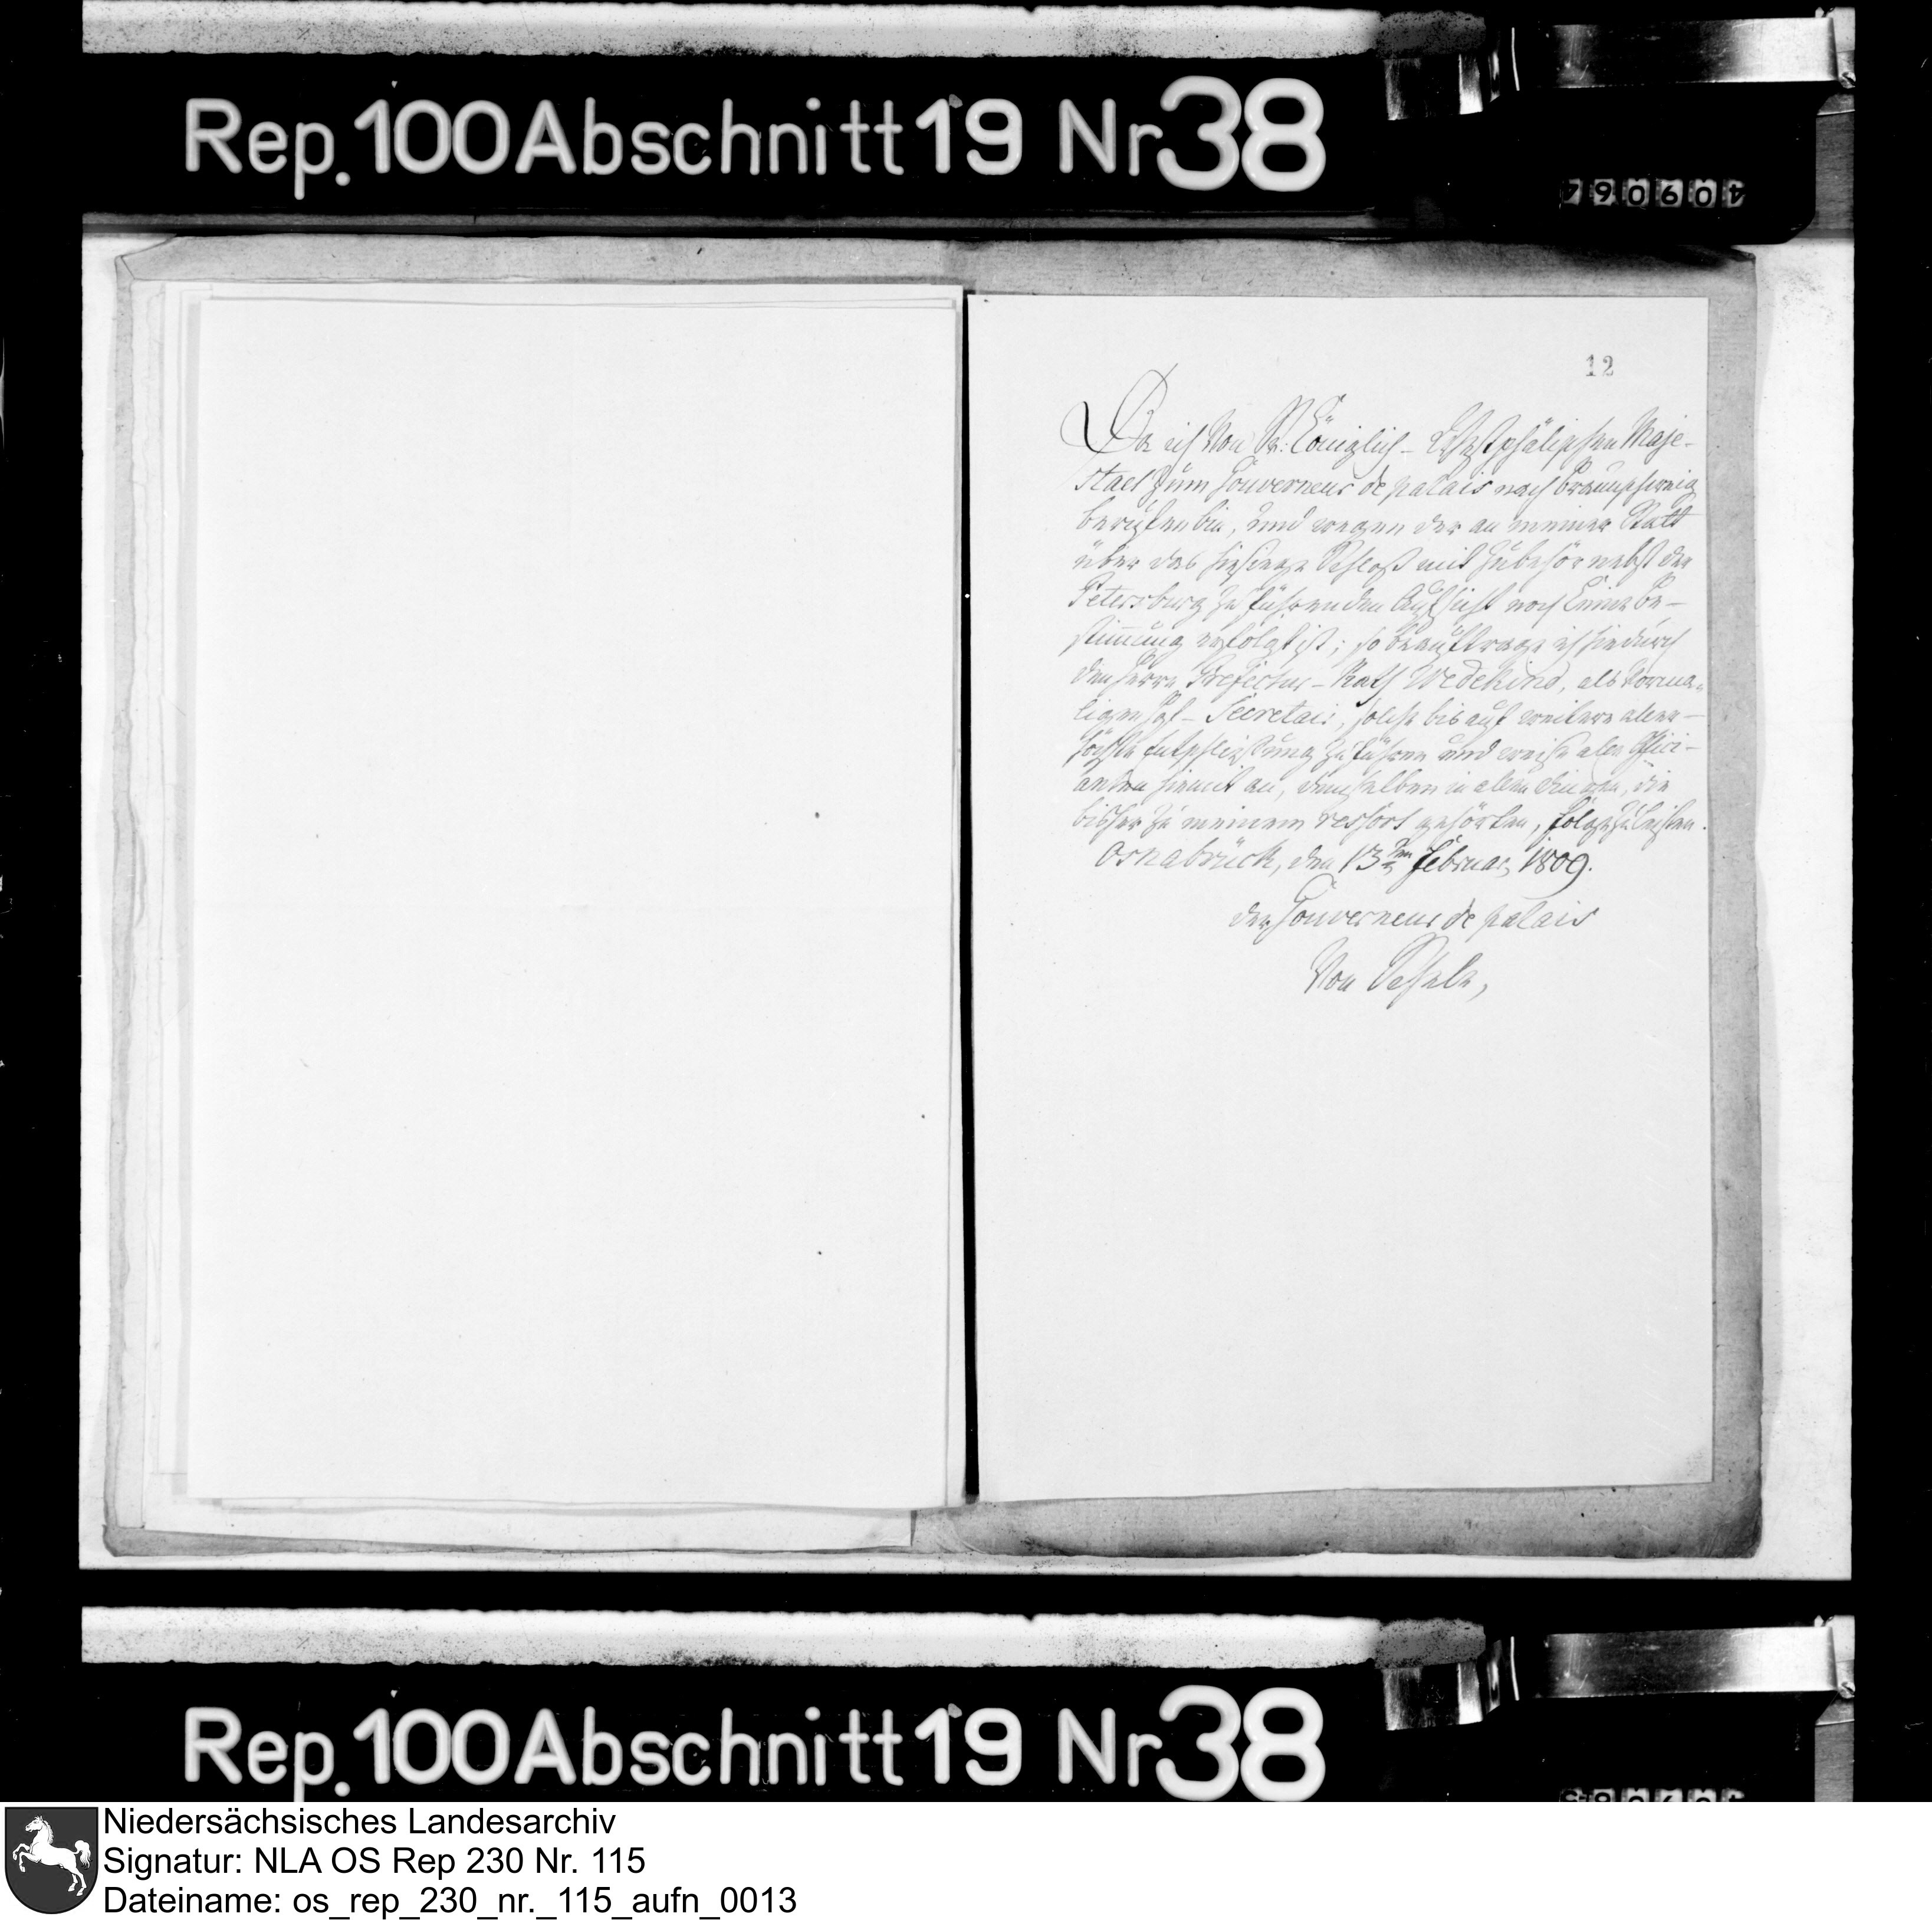 Rep. 100 Abschnitt 19 Nr 38
790604
12
Da ich von Sr: Königlich-Westphälischen Maje-
staet zum Gouverneur de palais nach Braunschweig
berufen bin, und wegen der an meiner Statt
über das hiesige Schloß mit Zubehör nebst der
Petersburg zu führenden Aufsicht noch keine Be-
stimmung erfolgt ist; so beauftrage ich hiedurch
den Herrn Prefectur-Rath Wedekind, als vorma-
ligen Hof-Secretair, solche bis auf weitere aller-
höchste Entschließung zu führen und weise alle Offici-
anten hiemit an, demselben in allen Dingen, die
bisher zu meinem ressort gehörten, Folge zu leisten.
Osnabrück, den 13ten Februar, 1809.
der Gouverneur de palais
von Schele,
Rep. 100 Abschnitt 19 Nr 38
Niedersächsisches Landesarchiv
Signatur: NLA OS Rep 230 Nr. 115
Dateiname: os_rep_230_nr._115_aufn_0013